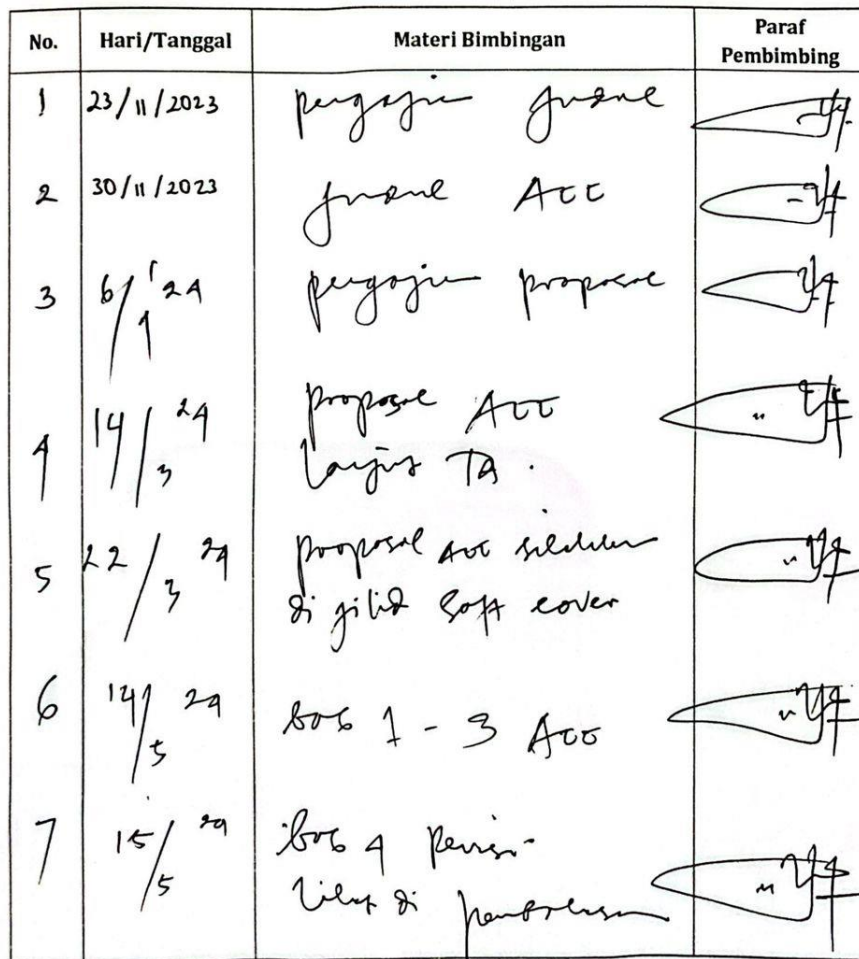 No. Hari/Tanggal Materi Bimbingan Paraf Pembimbing
1 23/11/2023 pengajuan judul
2 30/11/2023 judul ACC
3 6/1 24 pengajuan proposal
4 14/3 24 proposal ACC
lanjut TA.
5 22/3 24 proposal ACC silahkan
di jilid soft cover
6 14/5 24 bab 1 - 3 ACC
7 15/5 24 bab 4 Revisi
lihat di pembahasan